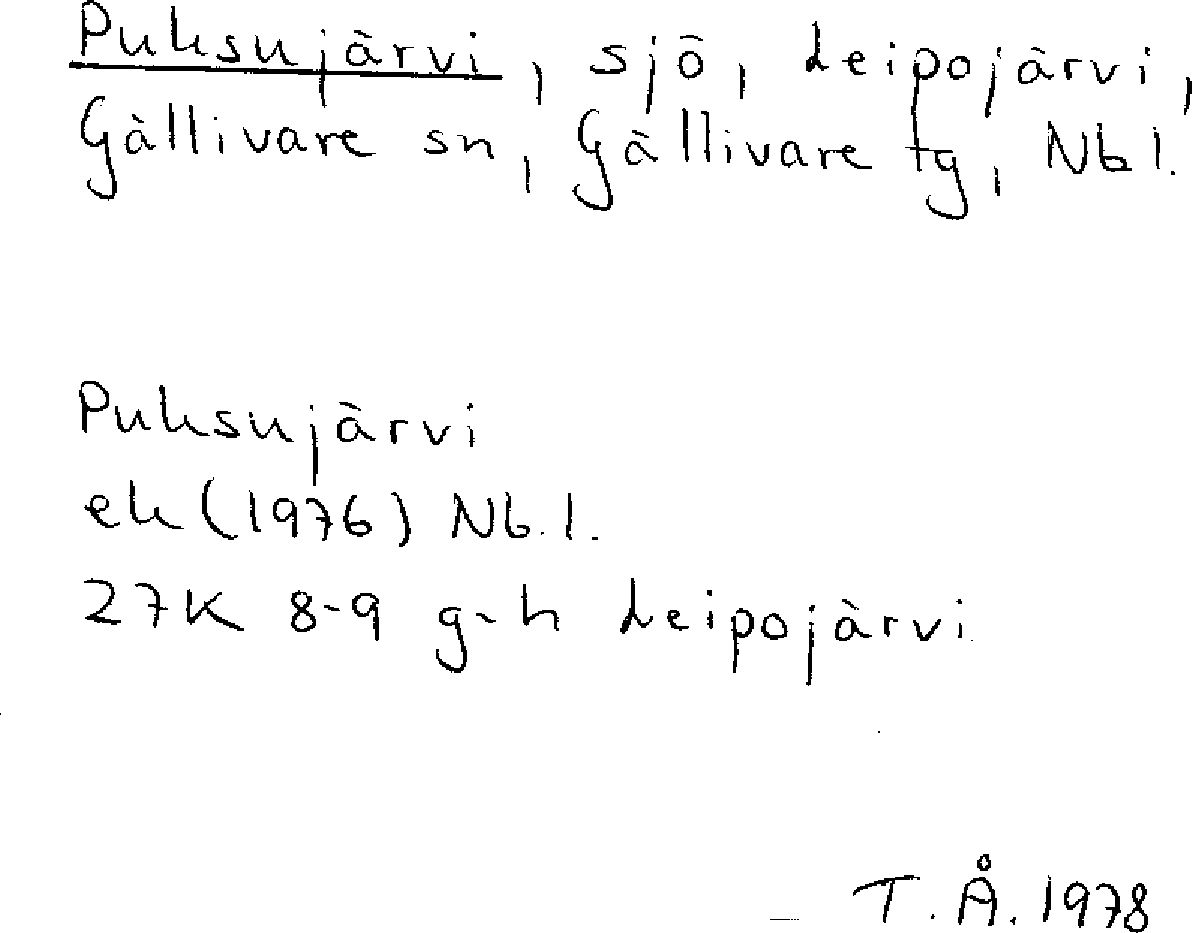 Puksujärvi, sjö, Leipojärvi,
Gällivare sn, Gällivare tg, Nb l.
Puksujärvi
ek (1976) Nb.l.
27K 8-9 g-h Leipojärvi
T.Å. 1978